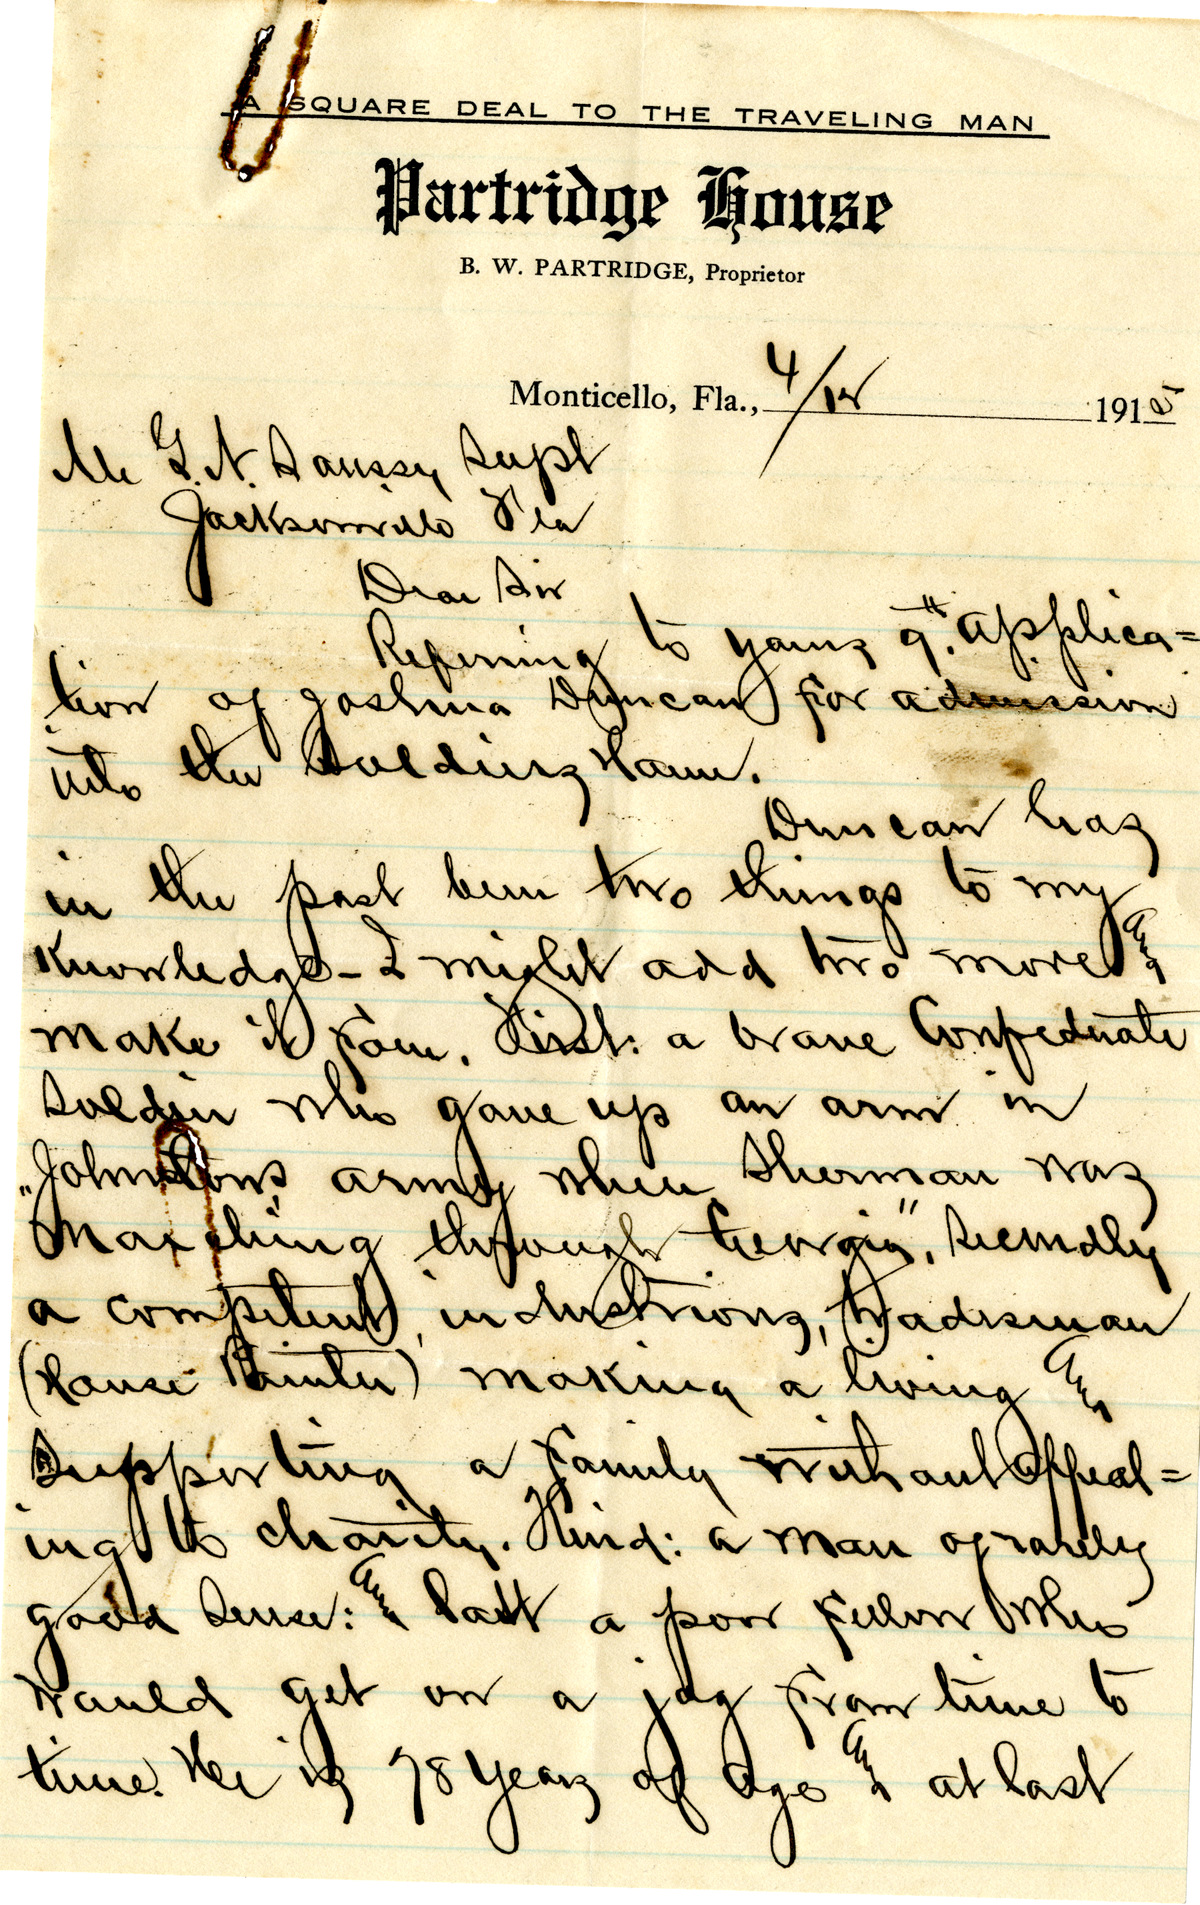 A SQUARE DEAL TO THE TRAVELING MAN
Partridge House
B. W. PARTRIDGE, Proprietor
Monticello, Fla., 4/12 191
Mr G. N. Saussy Supt
Jacksonville Fla
Dear Sir
Refering to yours 9th. applica=
tion of Joshua Duncan for admission
into the Soldiers Home.
Duncan has
in the past been two things to my
Knowledge - I might add two more and
make it four. First: a brave Confederate
Soldier who gave up an arm in
"Johnstons army when Sherman was
Marching through Georgia", Secondly
a competent, industrious, tradesman
(House Painter) making a living and
supporting a family without appeal=
ing to charity. Third: a man of rarely
good sense: and last a poor fellow who
would get on a jag from time to
time. He is 78 years of age and at last